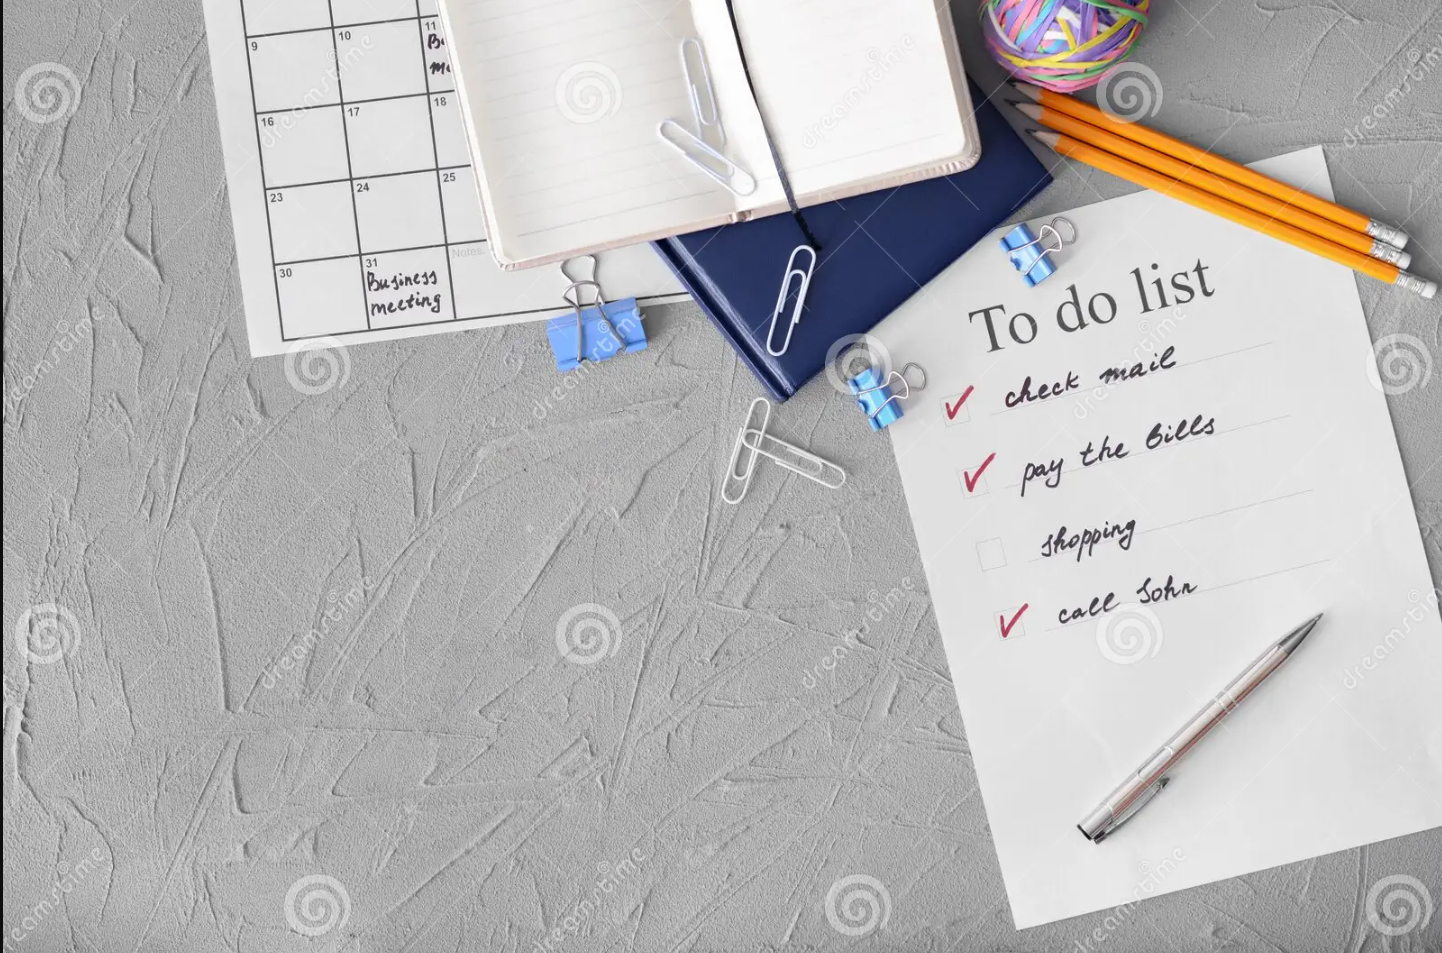 9 10 11
16 17 18
23 24 25
Notes:
30 31
Business
meeting
To do list
check mail
pay the bills
shopping
call John
dreamstime